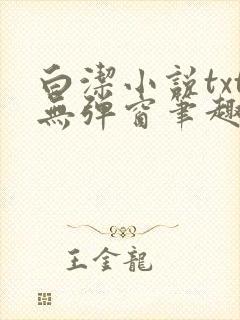 白潔小説txt
無彈窗筆趣
王金龍